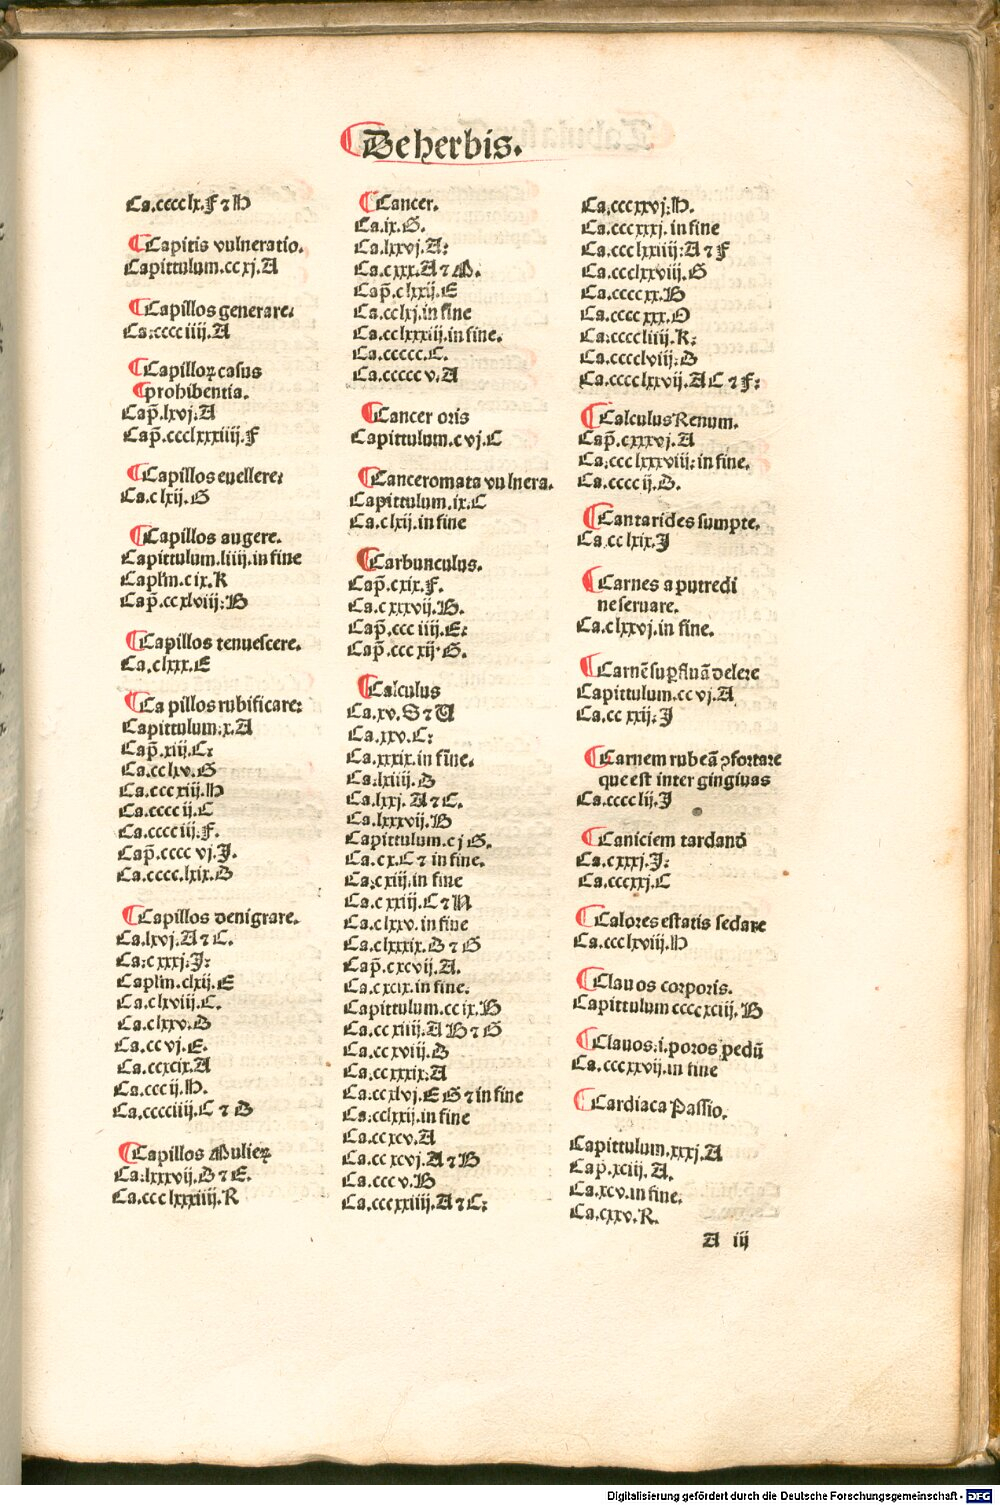 De herbis.
Ca.cccc lx.F ⁊ H
Capitis vulneratio.
Capittulum.cc xj.A
Capillos generare:
Ca:cccc iiij.A
Capilloꝝ casus
prohibentia.
Cap̄.lxvj.A
Cap̄.ccclxxxiiij.F
Capillos euellere:
Ca.c lxij.G
Capillos augere.
Capittulum.liiij.in fine
Caplm̄.c ix.K
Cap̄.cc xlviij:H
Capillos tenuescere.
Ca.clxxx.E
Ca pillos rubificare:
Capittulum:x.A
Cap̄.xiij.C:
Ca.cc lxv.G
Ca.ccc xiij.H
Ca.cccc ij.C
Ca.cccc iij.F.
Cap̄.cccc vj.J.
Ca.cccc.lxix.D
Capillos denigrare.
Ca.lxvj.A ⁊ C.
Ca:c xxxj.J:
Caplm̄.clxij.E
Ca.c lxviij.C.
Ca.c lxxv.D
Ca.cc vj.E.
Ca.ccxcix.A
Ca.ccc ij.H.
Ca.ccccciiij.C ⁊ D
Capillos Mulieꝝ
Ca:lxxxvij.D ⁊ E.
Ca.ccc lxxxiiij.R
Cancer.
Ca.ix.G.
Ca.lxxvj.A:
Ca.c xxx.A ⁊ M.
Cap̄.c lxxij.E
Ca.cc lxj.in fine
Ca.cc lxxxiij.in fine.
Ca.ccccc.C.
Ca.ccccc v.A
Cancer oris
Capittulum.c vj.C
Canceromata vu lnera.
Capittulum.ix.C
Ca.c lxij.in fine
Carbunculus.
Cap̄.c xix.F.
Ca.c xxxvij.H.
Cap̄.ccc iiij.E:
Cap̄.ccc xij.G.
Calculus
Ca.xv.S ⁊ U
Ca.xxv.C:
Ca.xxxix.in fine.
Ca:lxiiij.D
Ca.lxxj.A ⁊ C.
Ca.lxxxvij.H
Capittulum.c j G.
Ca.c x.C ⁊ in fine.
Ca:c xiij.in fine
Ca.c xxiij.C ⁊ N
Ca.c lxxv.in fine
Ca.c lxxxix.D ⁊ G
Cap̄.c xcvij.A.
Ca.c xcix.in fine.
Capittulum.cc ix.H
Ca.cc xiiij.A H ⁊ G
Ca.cc xviij.D
Ca.cc xxxix.A
Ca.cc xlvj.E G ⁊ in fine
Ca.cclxxij.in fine
Ca.cc xcv.A
Ca.cc xcvj.A ⁊ H
Ca.ccc v.H
Ca.cccxxiiij.A ⁊ C:
Ca.ccc xxvj:H.
Ca.ccc xxxj.in fine
Ca.ccc lxxiiij:A ⁊ F
Ca.ccclxxviij.G
Ca.cccc xx.H
Ca.cccc xxx.O
Ca:cccc liiij.K:
Ca.cccclviij:D
Ca.cccc lxxvij.A C ⁊ F:
Calculus Renum.
Cap̄.cxxxvj.A
Ca;ccc lxxxviij:in fine.
Ca.cccc ij.G.
Cantarides sumpte.
Ca.cc lxix.J
Carnes a putredi
ne seruare.
Ca.c lxxvj.in fine.
Carnē suꝑfluā delere
Capittulum.cc vj.A
Ca.cc xxij:J
Carnem rubeā ꝯfortare
que est inter gingiuas
Ca.cccc lij.J
Caniciem tardand
Ca.cxxxj.J:
Ca.cccxxj.C
Calores estatis sedare
Ca.ccc lxviij.H
Clauos corporis.
Capittulum cccc xciij.H
Clauos.i.poros pedū
Ca.cccxxvij.in fine
Cardiaca Passio.
Capittulum.xxxj.A
Cap̄.xciij.A.
Ca.xcv.in fine.
Ca.cxxv.R.
A iij
Digitalisierung gefördert durch die Deutsche Forschungsgemeinschaft - DFG